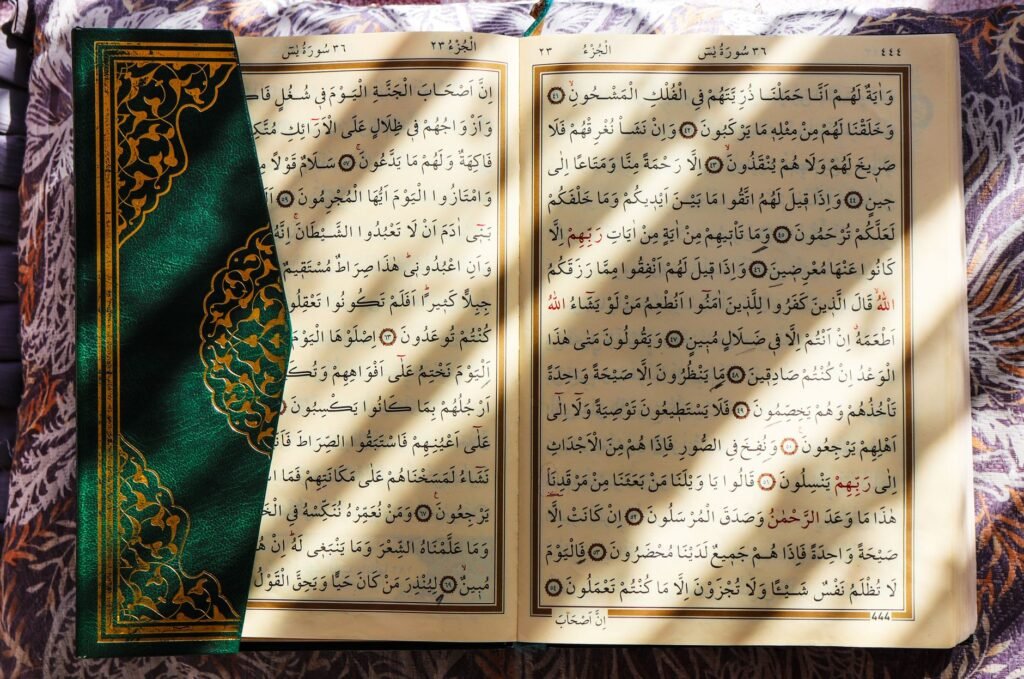 ٤٤٤ ٣٦ سُورَةُ يٰسٓ الْجُزْءُ ٢٣
وَاٰيَةٌ لَهُمْ اَنَّا حَمَلْنَا ذُرِّيَّتَهُمْ فِي الْفُلْكِ الْمَشْحُونِۙ ﴿٤١﴾
وَخَلَقْنَا لَهُمْ مِنْ مِثْلِه۪ مَا يَرْكَبُونَ ﴿٤٢﴾ وَاِنْ نَشَأْ نُغْرِقْهُمْ فَلَا
صَر۪يخَ لَهُمْ وَلَا هُمْ يُنْقَذُونَۙ ﴿٤٣﴾ اِلَّا رَحْمَةً مِنَّا وَمَتَاعًا اِلٰى
ح۪ينٍ ﴿٤٤﴾ وَاِذَا ق۪يلَ لَهُمُ اتَّقُوا مَا بَيْنَ اَيْد۪يكُمْ وَمَا خَلْفَكُمْ
لَعَلَّكُمْ تُرْحَمُونَ ﴿٤٥﴾ وَمَا تَأْت۪يهِمْ مِنْ اٰيَةٍ مِنْ اٰيَاتِ رَبِّهِمْ اِلَّا
كَانُوا عَنْهَا مُعْرِض۪ينَ ﴿٤٦﴾ وَاِذَا ق۪يلَ لَهُمْ اَنْفِقُوا مِمَّا رَزَقَكُمُ
اللّٰهُۙ قَالَ الَّذ۪ينَ كَفَرُوا لِلَّذ۪ينَ اٰمَنُٓوا اَنُطْعِمُ مَنْ لَوْ يَشَٓاءُ اللّٰهُ
اَطْعَمَهُۗ اِنْ اَنْتُمْ اِلَّا ف۪ي ضَلَالٍ مُب۪ينٍ ﴿٤٧﴾ وَيَقُولُونَ مَتٰى هٰذَا
الْوَعْدُ اِنْ كُنْتُمْ صَادِق۪ينَ ﴿٤٨﴾ مَا يَنْظُرُونَ اِلَّا صَيْحَةً وَاحِدَةً
تَأْخُذُهُمْ وَهُمْ يَخِصِّمُونَ ﴿٤٩﴾ فَلَا يَسْتَط۪يعُونَ تَوْصِيَةً وَلَٓا اِلٰٓى
اَهْلِهِمْ يَرْجِعُونَ۟ ﴿٥٠﴾ وَنُفِخَ فِي الصُّورِ فَاِذَا هُمْ مِنَ الْاَجْدَاثِ
اِلٰى رَبِّهِمْ يَنْسِلُونَ ﴿٥١﴾ قَالُوا يَا وَيْلَنَا مَنْ بَعَثَنَا مِنْ مَرْقَدِنَاۢ
هٰذَا مَا وَعَدَ الرَّحْمٰنُ وَصَدَقَ الْمُرْسَلُونَ ﴿٥٢﴾ اِنْ كَانَتْ اِلَّا
صَيْحَةً وَاحِدَةً فَاِذَا هُمْ جَم۪يعٌ لَدَيْنَا مُحْضَرُونَ ﴿٥٣﴾ فَالْيَوْمَ
لَا تُظْلَمُ نَفْسٌ شَيْـًٔا وَلَا تُجْزَوْنَ اِلَّا مَا كُنْتُمْ تَعْمَلُونَ ﴿٥٤﴾
444
اِنَّ اَصْحَابَ
الْجُزْءُ ٢٣ ٣٦ سُورَةُ يٰسٓ
اِنَّ اَصْحَابَ الْجَنَّةِ الْيَوْمَ ف۪ي شُغُلٍ
وَاَزْوَاجُهُمْ ف۪ي ظِلَالٍ عَلَى الْاَرَٓائِكِ
فَاكِهَةٌ وَلَهُمْ مَا يَدَّعُونَۚ ﴿٥٧﴾ سَلَامٌ قَوْلًا
وَامْتَازُوا الْيَوْمَ اَيُّهَا الْمُجْرِمُونَ ﴿٥٩﴾
يَا بَن۪ٓي اٰدَمَ اَنْ لَا تَعْبُدُوا الشَّيْطَانَۚ اِنَّهُ
وَاَنِ اعْبُدُون۪يۜ هٰذَا صِرَاطٌ مُسْتَق۪يمٌ
جِبِلًّا كَث۪يرًاۜ اَفَلَمْ تَكُونُوا تَعْقِلُو
كُنْتُمْ تُوعَدُونَ ﴿٦٣﴾ اِصْلَوْهَا الْيَوْمَ
اَلْيَوْمَ نَخْتِمُ عَلٰٓى اَفْوَاهِهِمْ
اَرْجُلُهُمْ بِمَا كَانُوا يَكْسِبُونَ
عَلٰٓى اَعْيُنِهِمْ فَاسْتَبَقُوا الصِّرَاطَ
نَشَٓاءُ لَمَسَخْنَاهُمْ عَلٰى مَكَانَتِهِمْ فَمَا
يَرْجِعُونَ۟ ﴿٦٧﴾ وَمَنْ نُعَمِّرْهُ نُنَكِّسْهُ فِي
وَمَا عَلَّمْنَاهُ الشِّعْرَ وَمَا يَنْبَغ۪ي لَهُۜ اِنْ
مُب۪ينٌۙ ﴿٦٩﴾ لِيُنْذِرَ مَنْ كَانَ حَيًّا وَيَحِقَّ الْقَوْلُ